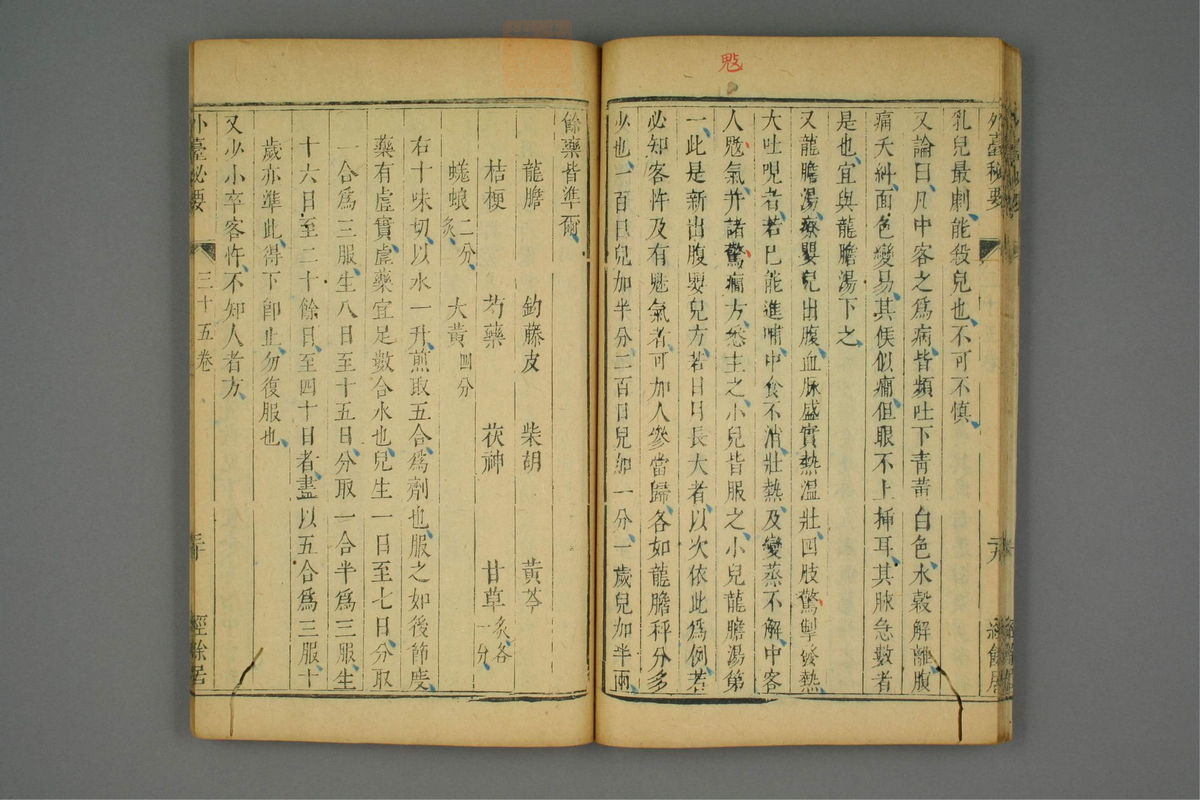 魃
外臺秘要
經餘居
乳兒最劇能殺兒也不可不慎
又論曰凡中客之為病皆頻吐下青黃白色水穀解離腹
痛夭糾面色變易其候似癎但眼不上揷耳其脉急數者
是也宜與龍膽湯下之
又龍膽湯療嬰兒出腹血脉盛實熱溫壯四肢驚掣發熱
大吐哯者若已能進哺中食不消壯熱及變蒸不解中客
人魃氣并諸驚癎方悉主之小兒皆服之小兒龍膽湯第
一此是新出腹嬰兒方若日月長大者以次依此為例若
必知客忤及有魃氣者可加人參當歸各如龍膽秤分多
少也一百日兒加半分二百日兒加一分一歲兒加半兩
餘藥皆準爾
龍膽 鈎藤皮 柴胡 黃芩
桔梗 芍藥 茯神 甘草炙各一分
蜣蜋炙二分 大黃四分
右十味切以水一升煎取五合為劑也服之如後節度
藥有虛實虛藥宜足數合水也兒生一日至七日分取
一合為三服生八日至十五日分取一合半為三服生
十六日至二十餘日至四十日者盡以五合為三服十
歲亦準此得下即止勿復服也
又少小卒客忤不知人者方
外臺秘要
三十五卷
三十
經餘居